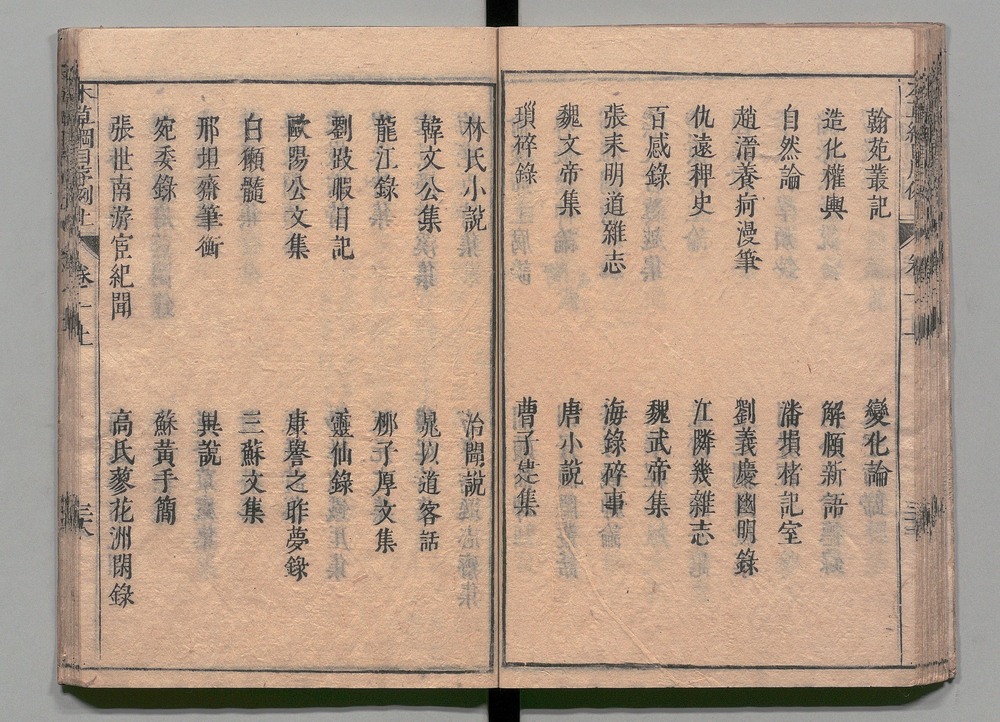 翰苑叢記　變化論
造化權輿　解頤新語
自然論　潘塤楮記室
趙溍養疴漫筆　劉義慶幽明錄
仇遠稗史　江隣幾雜志
百感錄　魏武帝集
張耒明道雜志　海錄碎事
魏文帝集　唐小說
瑣碎錄　曹子建集
林氏小說　治聞說
韓文公集　晁以道客話
龍江錄　柳子厚文集
劉跂暇日記　靈仙錄
歐陽公文集　康譽之昨夢錄
白獺髓　三蘇文集
邢坦齋筆衡　異說
宛委錄　蘇黃手簡
張世南游宦紀聞　高氏蓼花洲閑錄
本草綱目序例上　卷一上　三八